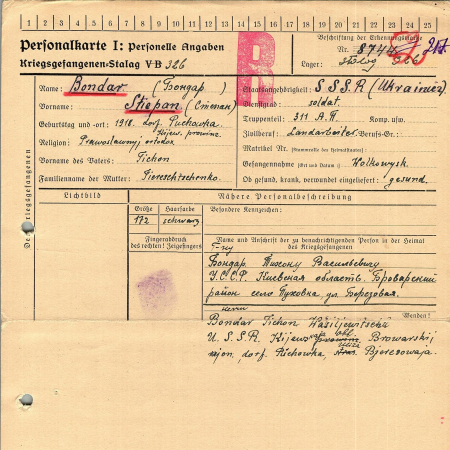 1 2 3 4 5 6 7 8 9 10 11 12 13 14 15 16 17 18 19 20 21 22 23 24 25
Personalkarte I: Personelle Angaben
Kriegsgefangenen-Stalag V B 326
Beschriftung der Erkennungsmarke
Nr. 8744
Lager: Stalag 326
Name: Bondar (Бондар)
Vorname: Stiepan (Степан)
Geburtstag und -ort: 1918. dorf. Puchowka
Kijew. prowinz.
Religion: Prawoslawnij ortodox
Vorname des Vaters: Tichon
Familienname der Mutter: Tiereschtschenko
Staatsangehörigkeit: S S S R (Ukrainiez)
Dienstgrad: soldat.
Truppenteil: 311 A.R. Komp. usw.
Zivilberuf: Landarbeiter Berufs-Gr.:
Matrikel Nr. (Stammrolle des Heimatstaates)
Gefangennahme (Ort und Datum) Wolkowysk
Ob gesund, krank, verwundet eingeliefert: gesund.
Des Kriegsgefangenen
Lichtbild
Nähere Personalbeschreibung
Größe Haarfarbe Besondere Kennzeichen:
172 schwarz
Fingerabdruck
des rechten! Zeigefingers
Name und Anschrift der zu benachrichtigenden Person in der Heimat
des Kriegsgefangenen
Бондар Тихону Васильевичу
У.С.С.Р. Киевская область. Броварский
район село Пуховка ул. Березовая.
Wenden!
Bondar Tichon Wasiljewitsch
U. S. S. R. Kijewskaja obl. Browarskij
rajon, dorf. Puchowka, Bjeresowaja.